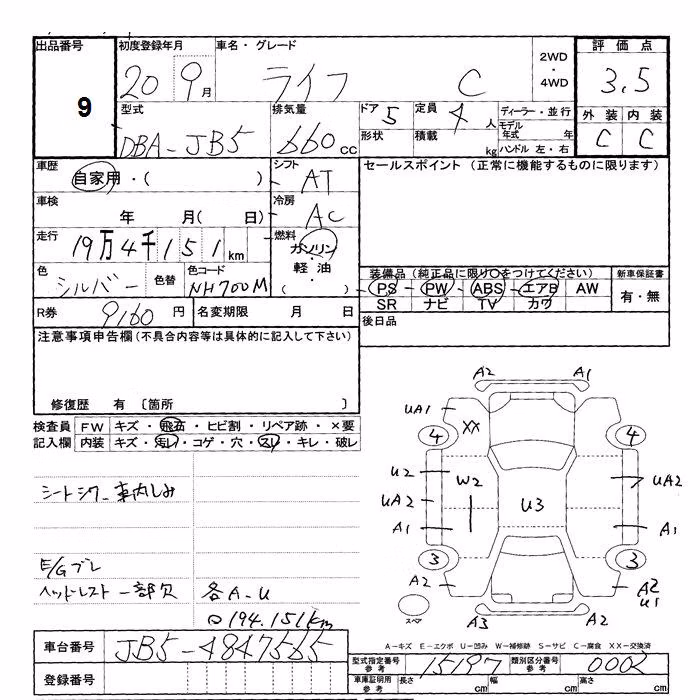 出品番号 初度登録年月 車名・グレード 2WD・4WD 評価点
9 20 9月 ライフ C 3.5
型式 排気量 ドア 5 定員 4人 ディーラー・並行 外装 内装
DBA-JB5 660cc 形状 積載 kg モデル年式 年 C C
ハンドル 左・右
車歴 シフト セールスポイント (正常に機能するものに限ります)
自家用・( ) AT
車検 冷房
年 月( 日) AC
走行 燃料
19万4千151km ガソリン・軽油
色 色替 色コード ( )
シルバー NH700M
装備品(純正品に限り○をつけてください) 新車保証書
PS PW ABS エアB AW 有・無
SR ナビ TV カワ
R券 9160円 名変期限 月 日 後日品
注意事項申告欄(不具合内容等は具体的に記入して下さい)
修復歴 有 [箇所 ]
検査員 FW キズ・飛石・ヒビ割・リペア跡・×要
記入欄 内装 キズ・汚れ・コゲ・穴・スレ・キレ・破レ
シートシワ 車内しみ
E/Gブレ
ヘッドレスト一部欠 各A-U
194.151km
A2 A1
UA1 XX
4 4
U2 W2 U3 UA2
UA2
A1 A1
3 3
A2 A2
U1
スペア A3 A2
A-キズ E-エクボ U-凹み W-補修跡 S-サビ C-腐食 XX-交換済
車台番号 JB5-4847565
型式指定番号 参考 15197 類別区分番号 参考 0002
登録番号 車庫証明用 参考 長さ cm 幅 cm 高さ cm